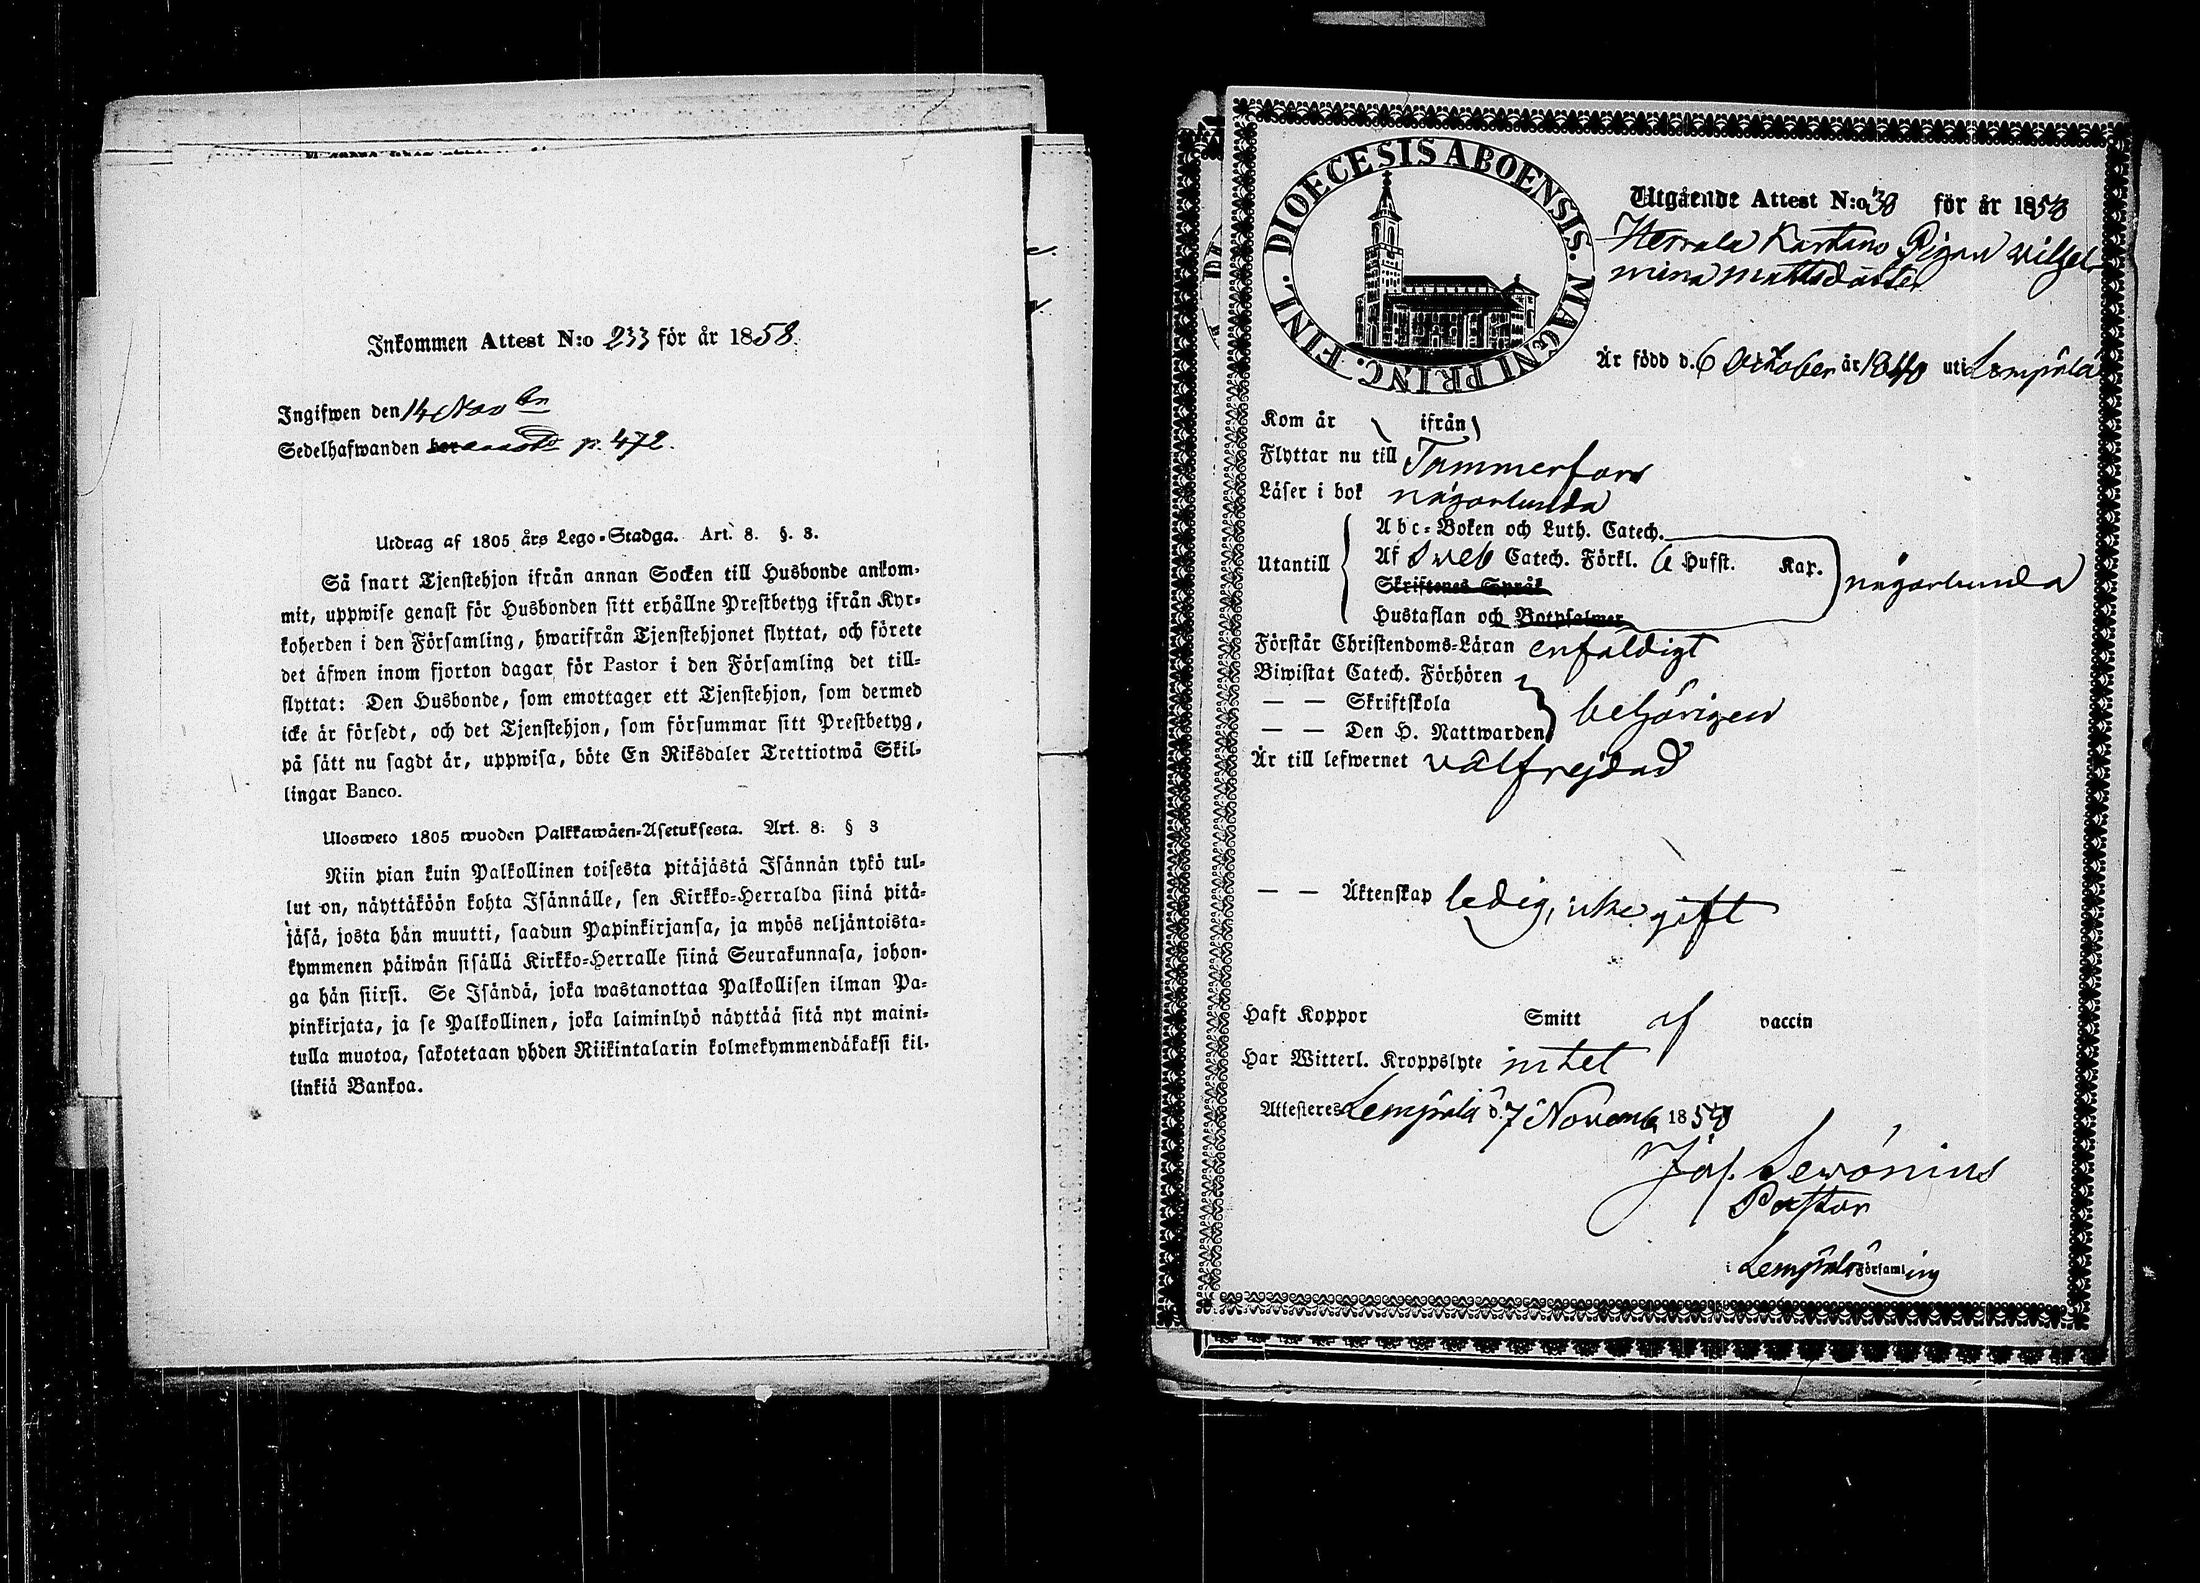 Inkommen Attest N:o 233 för år 1858.
Ingifwen den 14 Novbr
Sedelhafwanden p. 472.
Utdrag af 1805 års Lego-Stadga. Art. 8. §. 3.
Så snart Tjenstehjon ifrån annan Socken till Husbonde ankom-
mit, uppwise genast för Husbonden sitt erhållne Prestbetyg ifrån Kyr-
koherden i den Församling, hwarifrån Tjenstehjonet flyttat, och förete
det äfwen inom fjorton dagar för Pastor i den Församling det till-
flyttat: Den Husbonde, som emottager ett Tjenstehjon, som dermed
icke är försedt, och det Tjenstehjon, som försummar sitt Prestbetyg,
på sätt nu sagdt är, uppwisa, böte En Riksdaler Trettiotwå Skil-
lingar Banco.
Ulosweto 1805 wuoden Palkkawäen-Asetuksesta. Art. 8. § 3
Niin pian kuin Palkollinen toisesta pitäjästä Isännän tykö tul-
lut on, näyttäköön kohta Isännälle, sen Kirkko-Herralda siinä pitä-
jäsä, josta hän muutti, saadun Papinkirjansa, ja myös neljäntoista-
kymmenen päiwän sisällä Kirkko-Herralle siinä Seurakunnasa, johon-
ga hän siirsi. Se Isändä, joka wastanottaa Palkollisen ilman Pa-
pinkirjata, ja se Palkollinen, joka laiminlyö näyttää sitä nyt maini-
tulla muotoa, sakotetaan yhden Riikintalarin kolmekymmendäkaksi kil-
linkiä Bankoa.
FINL. DIOECESIS ABOENSIS. MAGNI PRINC.
Utgående Attest N:o 30 för år 1858
Herrala Kartano Pigan Wilhel-
mina Mattsdotter
Är född d. 6 October år 1840 uti Lempälä
Kom år ifrån
Flyttar nu till Tammerfors
Läser i bok någorlunda
Abc-Boken och Luth. Catech.
Utantill Af Sveb Catech. Förkl. 6 Hufst. Kap. någorlunda
Skriftenes Språk
Hustaflan och Botpsalmer
Förstår Christendoms-Läran enfaldigt
Biwistat Catech. Förhören
— — Skriftskola behörigen
— — Den H. Nattwarden
Är till lefwernet välfrejdad
— — Äktenskap ledig, icke gift
Haft Koppor Smitt af vaccin
Har Witterl. Kroppslyte intet
Attesteres Lempälä d. 7 Novemb 1858
Pastor
i Lempälä Församling